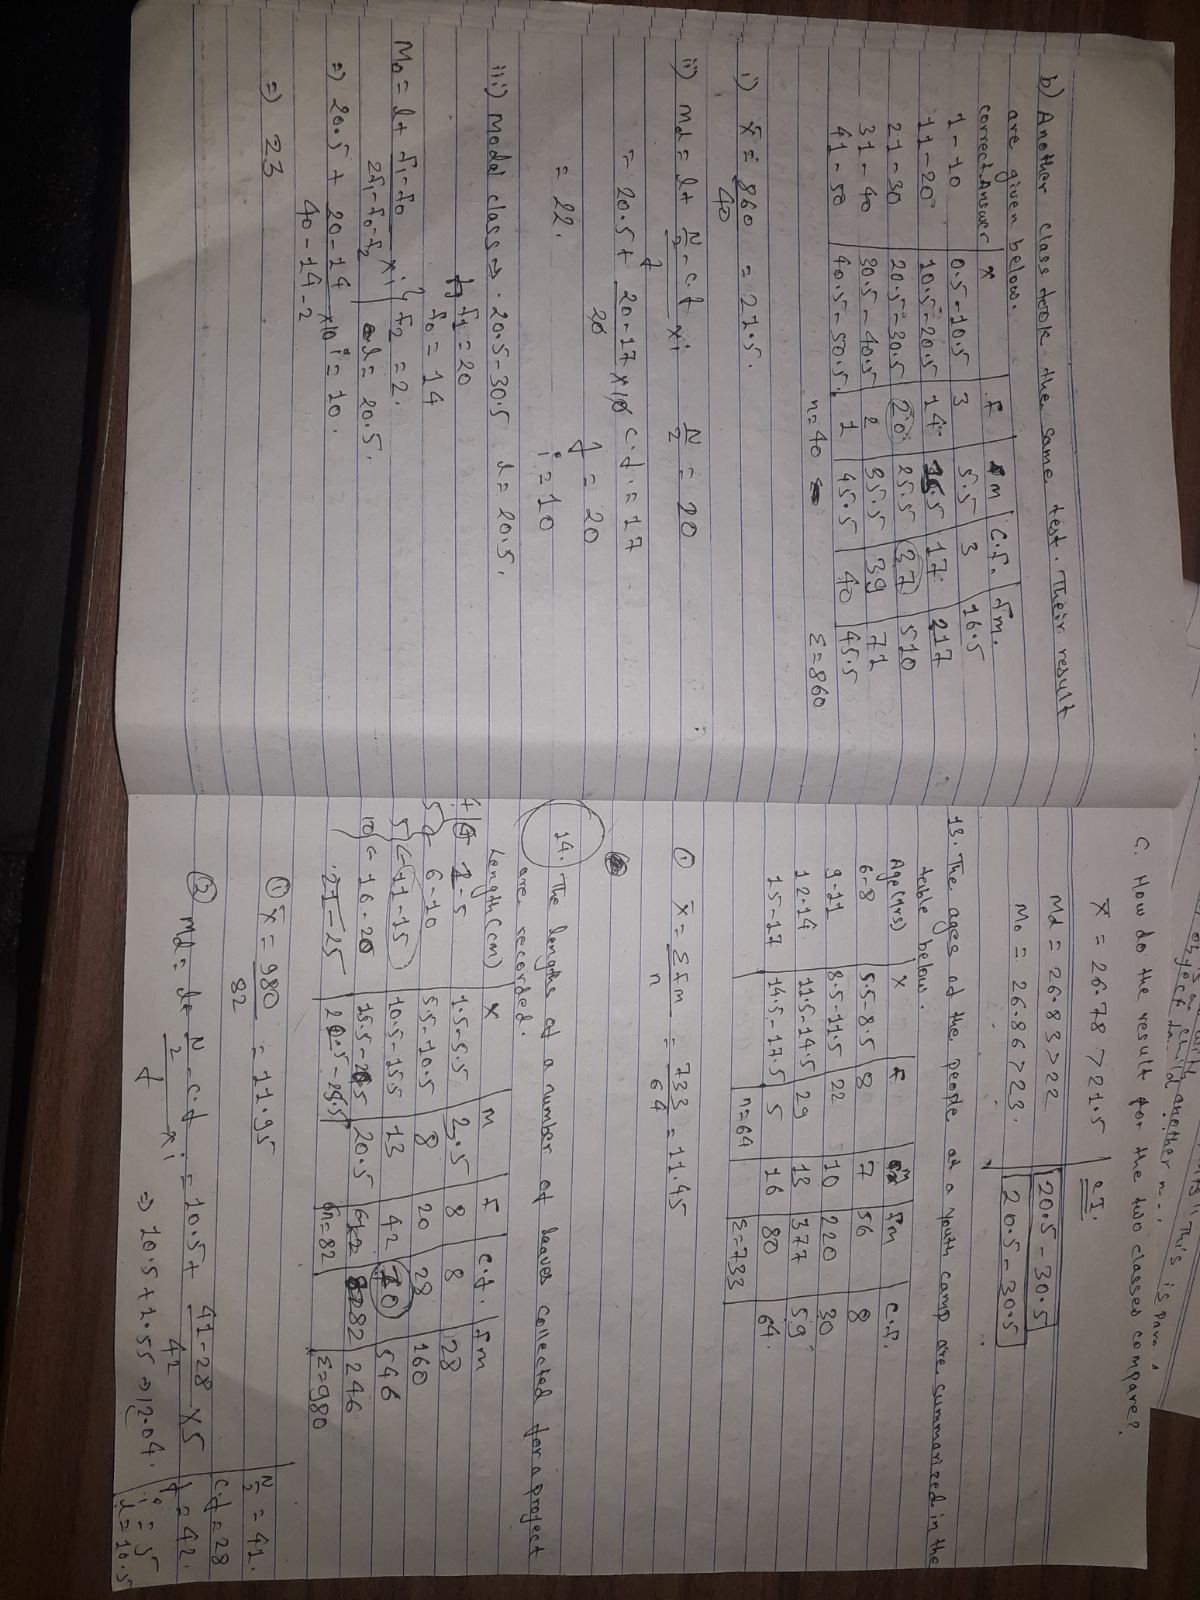 b) Another class took the same test. Their result
are given below.
correct Answer | x | f | m | C.f. | fm.
1-10 | 0.5-10.5 | 3 | 5.5 | 3 | 16.5
11-20 | 10.5-20.5 | 14 | 15.5 | 17 | 217
21-30 | 20.5-30.5 | 20 | 25.5 | 37 | 510
31-40 | 30.5-40.5 | 2 | 35.5 | 39 | 71
41-50 | 40.5-50.5 | 1 | 45.5 | 40 | 45.5
n=40 Σ=860
i) x̄ = 860/40 = 21.5.
ii) Md = l + (N/2 - c.f)/f × i N/2 = 20
= 20.5 + (20-17)/20 × 10 C.f. = 17
f = 20
= 22. i = 10
iii) Modal class => 20.5-30.5 l = 20.5.
f1 = 20
f0 = 14
Mo = l + (f1-f0)/(2f1-f0-f2) × i f2 = 2.
l = 20.5.
=) 20.5 + (20-14)/(40-14-2) × 10 i = 10.
=) 23
C. How do the result for the two classes compare?
x̄ = 26.78 > 21.5 C I.
Md = 26.83 > 22 20.5-30.5
Mo = 26.86 > 23. 20.5-30.5
13. The ages of the people at a youth camp are summarized in the
table below.
Age(yrs) | x | f | m | fm | C.f.
6-8 | 5.5-8.5 | 8 | 7 | 56 | 8
9-11 | 8.5-11.5 | 22 | 10 | 220 | 30
12-14 | 11.5-14.5 | 29 | 13 | 377 | 59
15-17 | 14.5-17.5 | 5 | 16 | 80 | 64
n=64 Σ=733
① x̄ = Σfm/n = 733/64 = 11.45
14. The lengths of a number of leaves collected for a project
are recorded.
Length(cm) | x | m | f | c.f. | fm
2-5 | 1.5-5.5 | 3.5 | 8 | 8 | 28
6-10 | 5.5-10.5 | 8 | 20 | 28 | 160
11-15 | 10.5-15.5 | 13 | 42 | 70 | 546
16-25 | 15.5-25.5 | 20.5 | 12 | 82 | 246
n=82 Σ=980
① x̄ = 980/82 = 11.95
② Md = l + (N/2 - c.f)/f × i = 10.5 + (41-28)/42 × 5
=> 10.5 + 1.55 => 12.04.
N/2 = 41.
C.f = 28
f = 42.
i = 5
l = 10.5